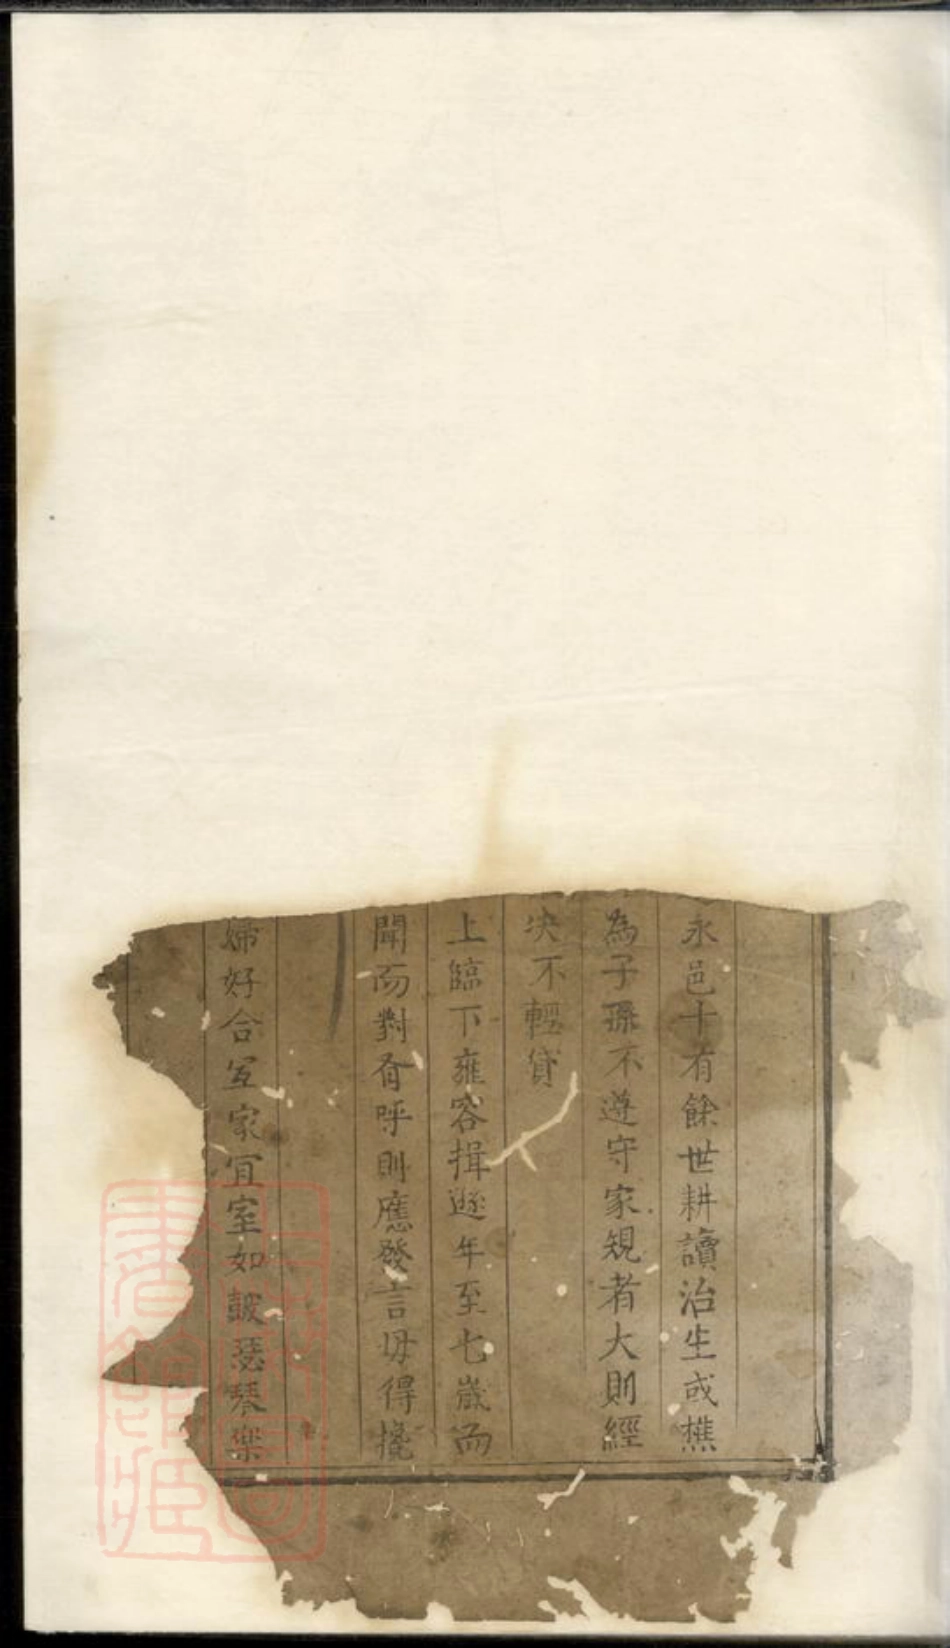 永邑十有餘世耕讀治生或樵
為子孫不遵守家規者大則經
决不輕貸
上臨下雍容揖遜年至七歲而
聞而對有呼則應發言毋得攙
婦好合宜家宜室如鼓瑟琴樂